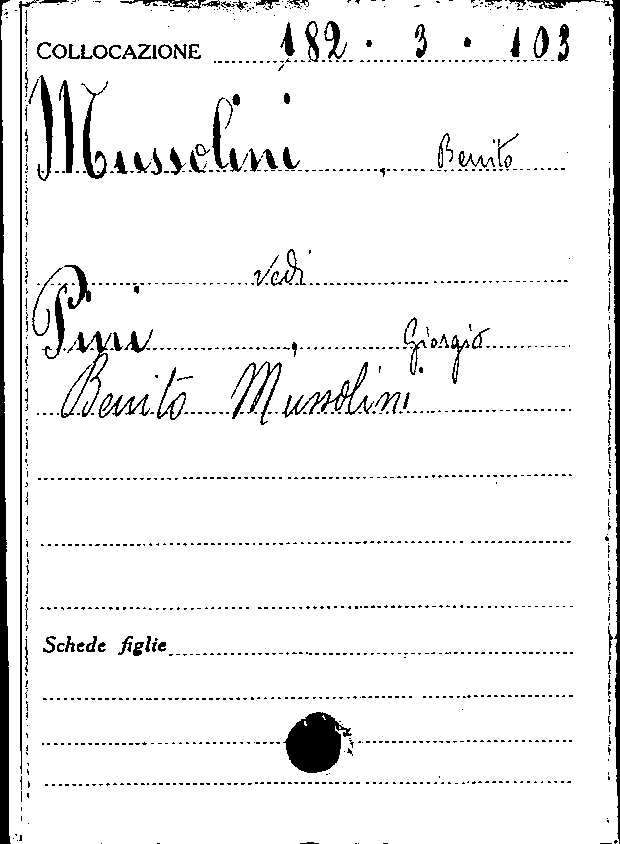 COLLOCAZIONE 182 · 3 · 103
Mussolini , Benito
vedi
Pini , Giorgio
Benito Mussolini
Schede figlie